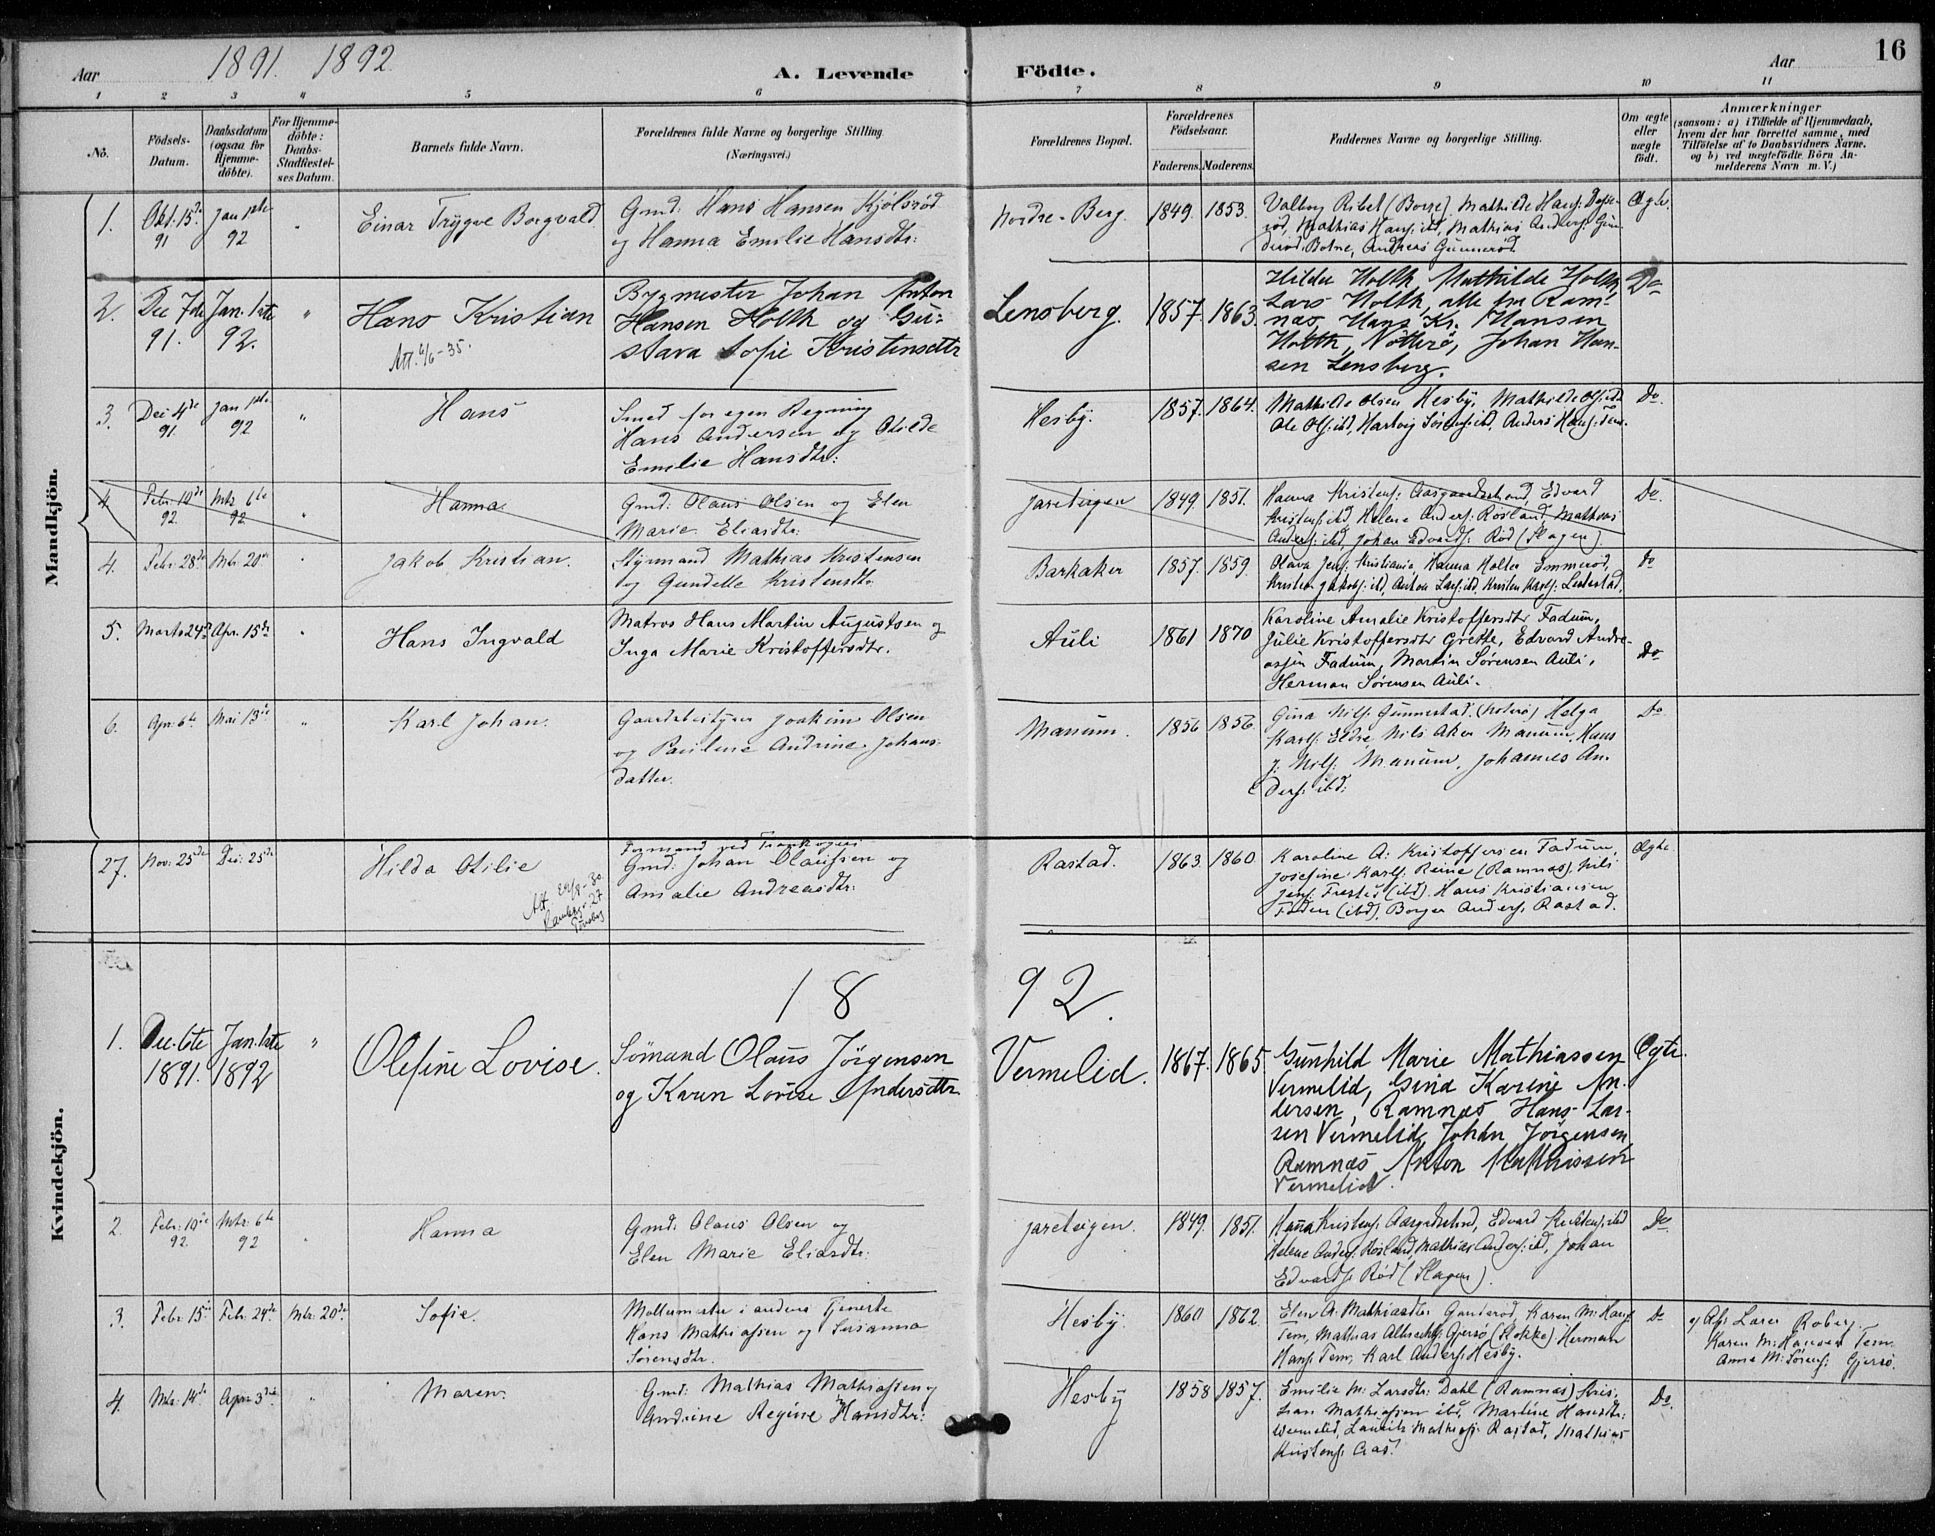 16
Aar 1891. 1892
A. Levende Födte.
Aar
1 2 3 4 5 6 7 8 9 10 11
No.
Födsels-Datum.
Daabsdatum (ogsaa for Hjemme-döbte).
For Hjemme-döbte: Daabs-Stadfæstel-ses Datum.
Barnets fulde Navn.
Forældrenes fulde Navne og borgerlige Stilling. (Næringsvei.)
Forældrenes Bopæl.
Forældrenes Födselsaar.
Faderens. Moderens.
Faddernes Navne og borgerlige Stilling.
Om ægte eller uægte födt.
Anmærkninger
(saasom: a) i Tilfælde af Hjemmedaab,
hvem der har forrettet samme, med
Tilföielse af to Daabsvidners Navne.
og b) ved uægtefödte Börn An-
melderens Navn m. V.)
Mandkjön.
1. Okt. 15de 91 Jan 1ste 92 " Einar Trygve Borgvald
Gmd: Hans Hansen Kjölsröd
og Hanna Emilie Hansdtr:
Nordre-Berg. 1849. 1853.
Valborg Ribet (Borge). Mathilde Hans:
Ægte.
2. Dec 7de 91. Jan. 1ste 92. " Hans Kristian
Att. 6/6-35.
Bygmester Johan Anton
Hansen Holth og Gu-
stava Sofie Kristensdtr
Lensberg. 1857. 1863.
Hilda Holth, Mathilde Holth,
Lars Holth, alle fra Ram-
næs, Hans Kr. Hansen
Holth, Nötterö, Johan Han-
sen Lensberg.
Do
3. Dec 4de 91. Jan 1ste 92 " Hans
Smed for egen Regning
Hans Andersen og Otilde
Emilie Hansdtr:
Hesby. 1857. 1864.
Mathilde Olsen Hesby, Mathilde Ols: ibd
Ole Ols: ibd, Hartvig Sörens: ibd, Anders Hans: Tem.
Do.
4. Febr. 10de 92. Mts 6te 92 " Hanna
Gmd: Olaus Olsen og Elen
Marie Eliasdtr:
Jareteigen 1849. 1851.
Hanna Kristens: Aasgaardstrand, Edvard
Kristens: ibd, Helene Anders: Rosland, Mathias
Anders: ibd, Johan Edvards: Röd (Slagen)
Do.
4. Febr: 28de Mts. 20de " Jakob Kristian.
Styrmand Mathias Kristensen
og Gundelle Kristensdtr.
Barkaker 1857. 1859.
Olava Jens: Kristiania, Hanna Holter Emmeröd,
Kristen Jakobs: ibd, Anton Lars: ibd, Kristen Karls:
Do
5. Marts 24de Apr. 15de " Hans Ingvald
Matros Hans Martin Augustsen og
Inga Marie Kristoffersdtr.
Auli 1861 1870
Karoline Amalie Kristoffersdtr Fadum,
Julie Kristoffersdtr Grette, Edvard Andre-
assen Fadum, Martin Sörensen Auli,
Herman Sörensen Auli.
Do
6. Apr: 6te Mai 13de " Karl Johan.
Gaardbestyrer Joakim Olsen
og Pauline Andrine Johans-
datter.
Manum. 1856 1856.
Gina Nils: Gunnestad. (Noterö) Helga
Karls: Eldre, Nils Aker Manum, Hans
J. Nils: Manum, Johannes An-
ders: ibd:
Do
27. Nov: 25de Dec: 25de Hilda Otilie
Formand ved Trankogeri
Gmd: Johan Olaussen og
Amalie Andreasdtr:
Rastad. 1863. 1860.
Karoline A: Kristoffersen Fadum,
Josefine Karls: Reine (Ramnæs), Nils
Jens: Frested (ibd). Hans Kristiansen
Faden (ibd), Borger Anders: Rastad.
Ægte
1892.
Kvindekjön.
1. Dec. 6te 1891. Jan. 1ste 1892 " Olefine Lovise.
Sömand Olaus Jörgensen
og Karen Lovise Andersdtr
Vermelid. 1867. 1865.
Gunhild Marie Mathiassen
Vermelid, Gina Karine An-
dersen, Ramnæs, Hans Lar-
sen Vermelid, Johan Jörgensen,
Ramnæs, Anton Mathissen
Vermelid.
Ægte.
2. Febr: 10de 92. Mts: 6te 92 " Hanna
Gmd: Olaus Olsen og
Elen Marie Eliasdtr:
Jareteigen. 1849 1851.
Hanna Kristens: Aasgrdstrand, Edvard Kristens: ibd
Helene Anders: Rosland, Mathias Anders: ibd, Johan
Edvards: Röd (Slagen).
Do
3. Febr 15de Febr. 24de Mts: 20de Sofie.
Möllemester i andens Tjeneste
Hans Mathiassen og Susanna
Sörensdtr.
Hesby. 1860 1862.
Elen A. Mathiasdtr Gunderöd, Karen M. Hans:
Tem, Mathias Albrechts: Gjersö (Stokke). Herman
Hans: Tem, Karl Anders: Hesby.
Do
Karen M: Hansen Tem
Anne M: Sörens: Gjersö.
4. Mts: 14de Apr: 3die " Maren.
Gmd: Mathias Mathiassen og
Andrine Regine Hansdtr:
Hesby 1858 1857.
Emilie M: Larsdtr: Dahl (Ramnæs) Kris-
tian Mathiassen ibd, Martine Hansdtr:
Wermelid, Laurits Mathias: Rastad, Mathias
Kristens: Aas.
Do.